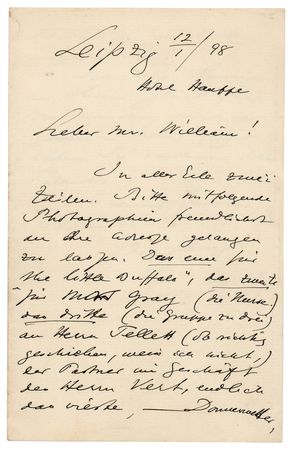 Leipzig 12/1/98
Hotel Hauffe
Lieber Mr. William!
In aller Eile zwei
Zeilen. Bitte mitfolgende
Photographien freundlichst
an ihre Adresse gelangen
zu lassen. Das eine für
"the little Buffalo", das zweite
für Gray (die Nurse)
das dritte (die Gruppe zu drei)
an Herrn Tellett (ob richtig
geschrieben, weiss ich nicht,)
der Partner im Geschäft
des Herrn Vert, endlich
das vierte, — Donnerwetter,